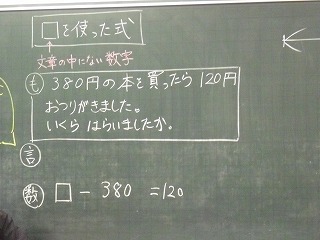 □を使った式
文章の中にない数字
も 380円の本を買ったら120円
おつりがきました。
いくらはらいましたか。
言
数 □ － 380 ＝120